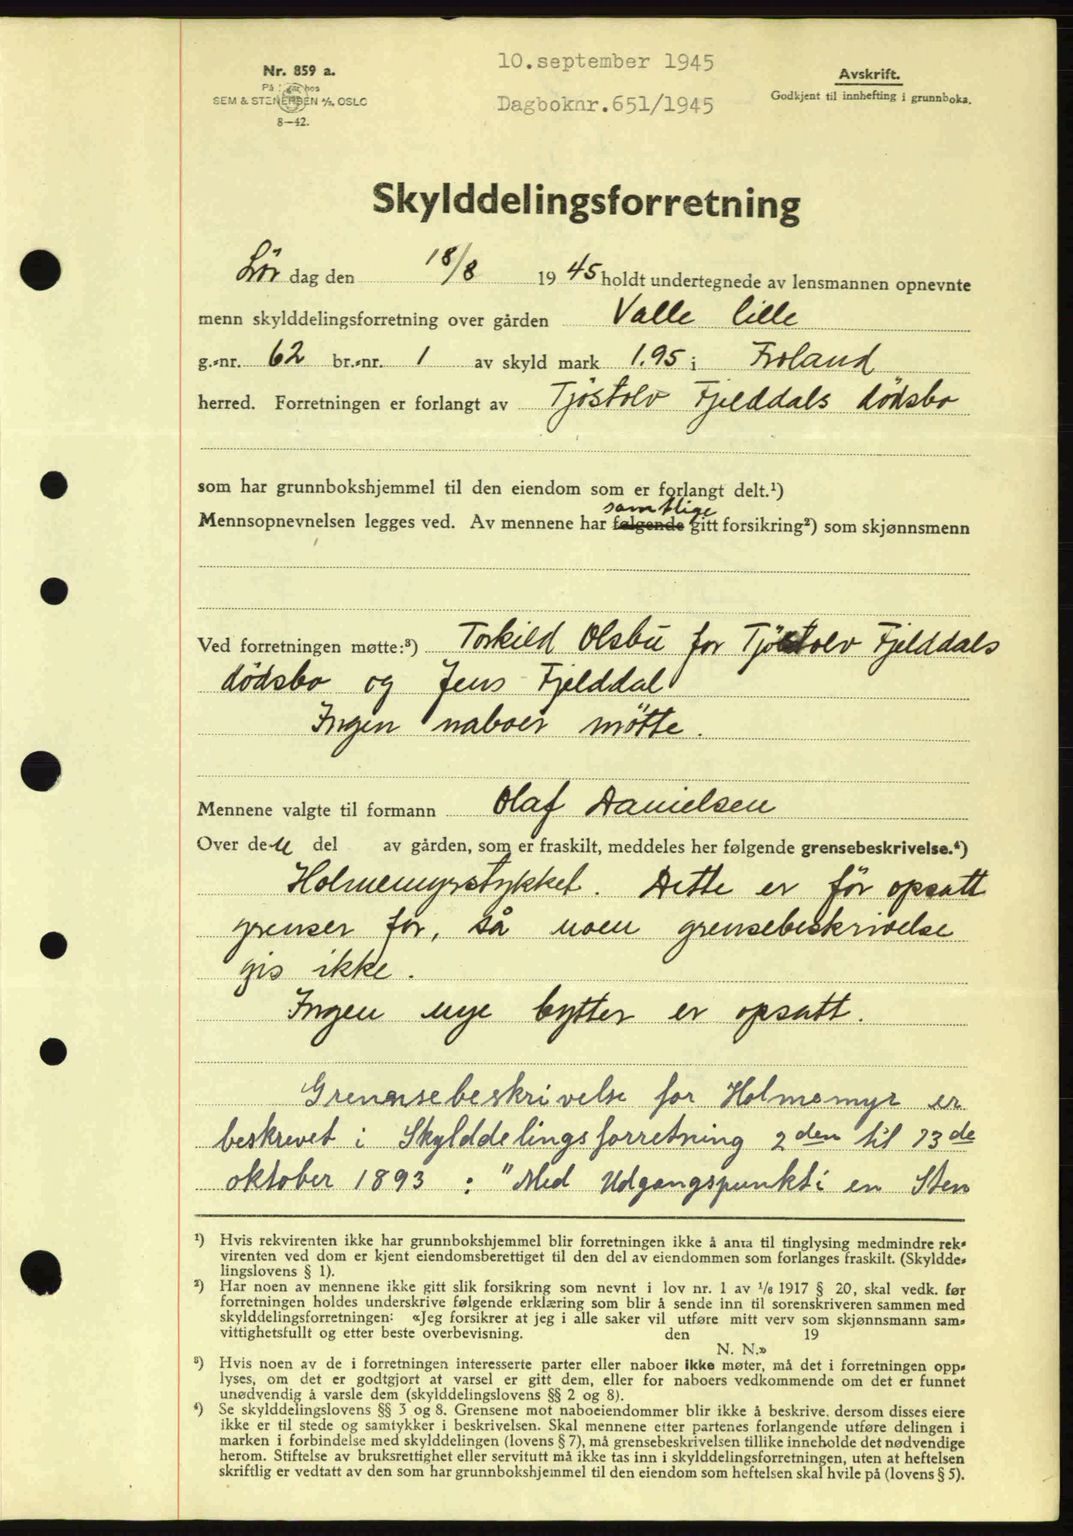 10.september 1945
Nr. 859 a.
Avskrift.
SEM & STENERSEN A/S, OSLO
Dagboknr.651/1945
Godkjent til innhefting i grunnboka.
8—42.
Skylddelingsforretning
Lör dag den 18/8 19 45 holdt undertegnede av lensmannen opnevnte
menn skylddelingsforretning over gården Valle lille
g.-nr. 62 br.-nr. 1 av skyld mark 1.95 i Froland
herred. Forretningen er forlangt av Tjöstolv Fjelddals dödsbo
som har grunnbokshjemmel til den eiendom som er forlangt delt.¹)
samtlige
Mennsopnevnelsen legges ved. Av mennene har følgende gitt forsikring²) som skjønnsmenn
Ved forretningen møtte:³) Torkild Olsbu for Tjöstolv Fjelddals
dödsbo og Jens Fjelddal
Ingen naboer mötte.
Mennene valgte til formann Olaf Danielsen
Over de-n del av gården, som er fraskilt, meddeles her følgende grensebeskrivelse.⁴)
Holmemyrstykket. Dette er för opsatt
grenser for, så noen grensebeskrivelse
gis ikke.
Ingen nye bytter er opsatt.
Grensebeskrivelse for Holmemyr er
beskrevet i Skylddelingsforretning 2den til 13de
oktober 1893 : "Med Udgangspunkt i en Sten
¹) Hvis rekvirenten ikke har grunnbokshjemmel blir forretningen ikke å anta til tinglysing medmindre rek-
virenten ved dom er kjent eiendomsberettiget til den del av eiendommen som forlanges fraskilt. (Skyldde-
lingslovens § 1).
²) Har noen av mennene ikke gitt slik forsikring som nevnt i lov nr. 1 av 1/6 1917 § 20, skal vedk. før
forretningen holdes underskrive følgende erklæring som blir å sende inn til sorenskriveren sammen med
skylddelingsforretningen: «Jeg forsikrer at jeg i alle saker vil utføre mitt verv som skjønnsmann sam-
vittighetsfullt og etter beste overbevisning. den 19
N. N.»
³) Hvis noen av de i forretningen interesserte parter eller naboer ikke møter, må det i forretningen opp-
lyses, om det er godtgjort at varsel er gitt dem, eller for naboers vedkommende om det er funnet
unødvendig å varsle dem (skylddelingslovens §§ 2 og 8).
⁴) Se skylddelingslovens §§ 3 og 8. Grensene mot naboeiendommer blir ikke å beskrive, dersom disses eiere
ikke er til stede og samtykker i beskrivelsen. Skal mennene etter partenes forlangende utføre delingen i
marken i forbindelse med skylddelingen (lovens § 7), må grensebeskrivelsen tillike inneholde det nødvendige
herom. Stiftelse av bruksrettighet eller servitutt må ikke tas inn i skylddelingsforretningen, uten at heftelsen
skriftlig er vedtatt av den som har grunnbokshjemmel til den eiendom som heftelsen skal hvile på (lovens § 5).